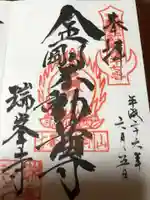 奉拝
平成二十六年
六月五日
金剛不動尊
瑞峯寺